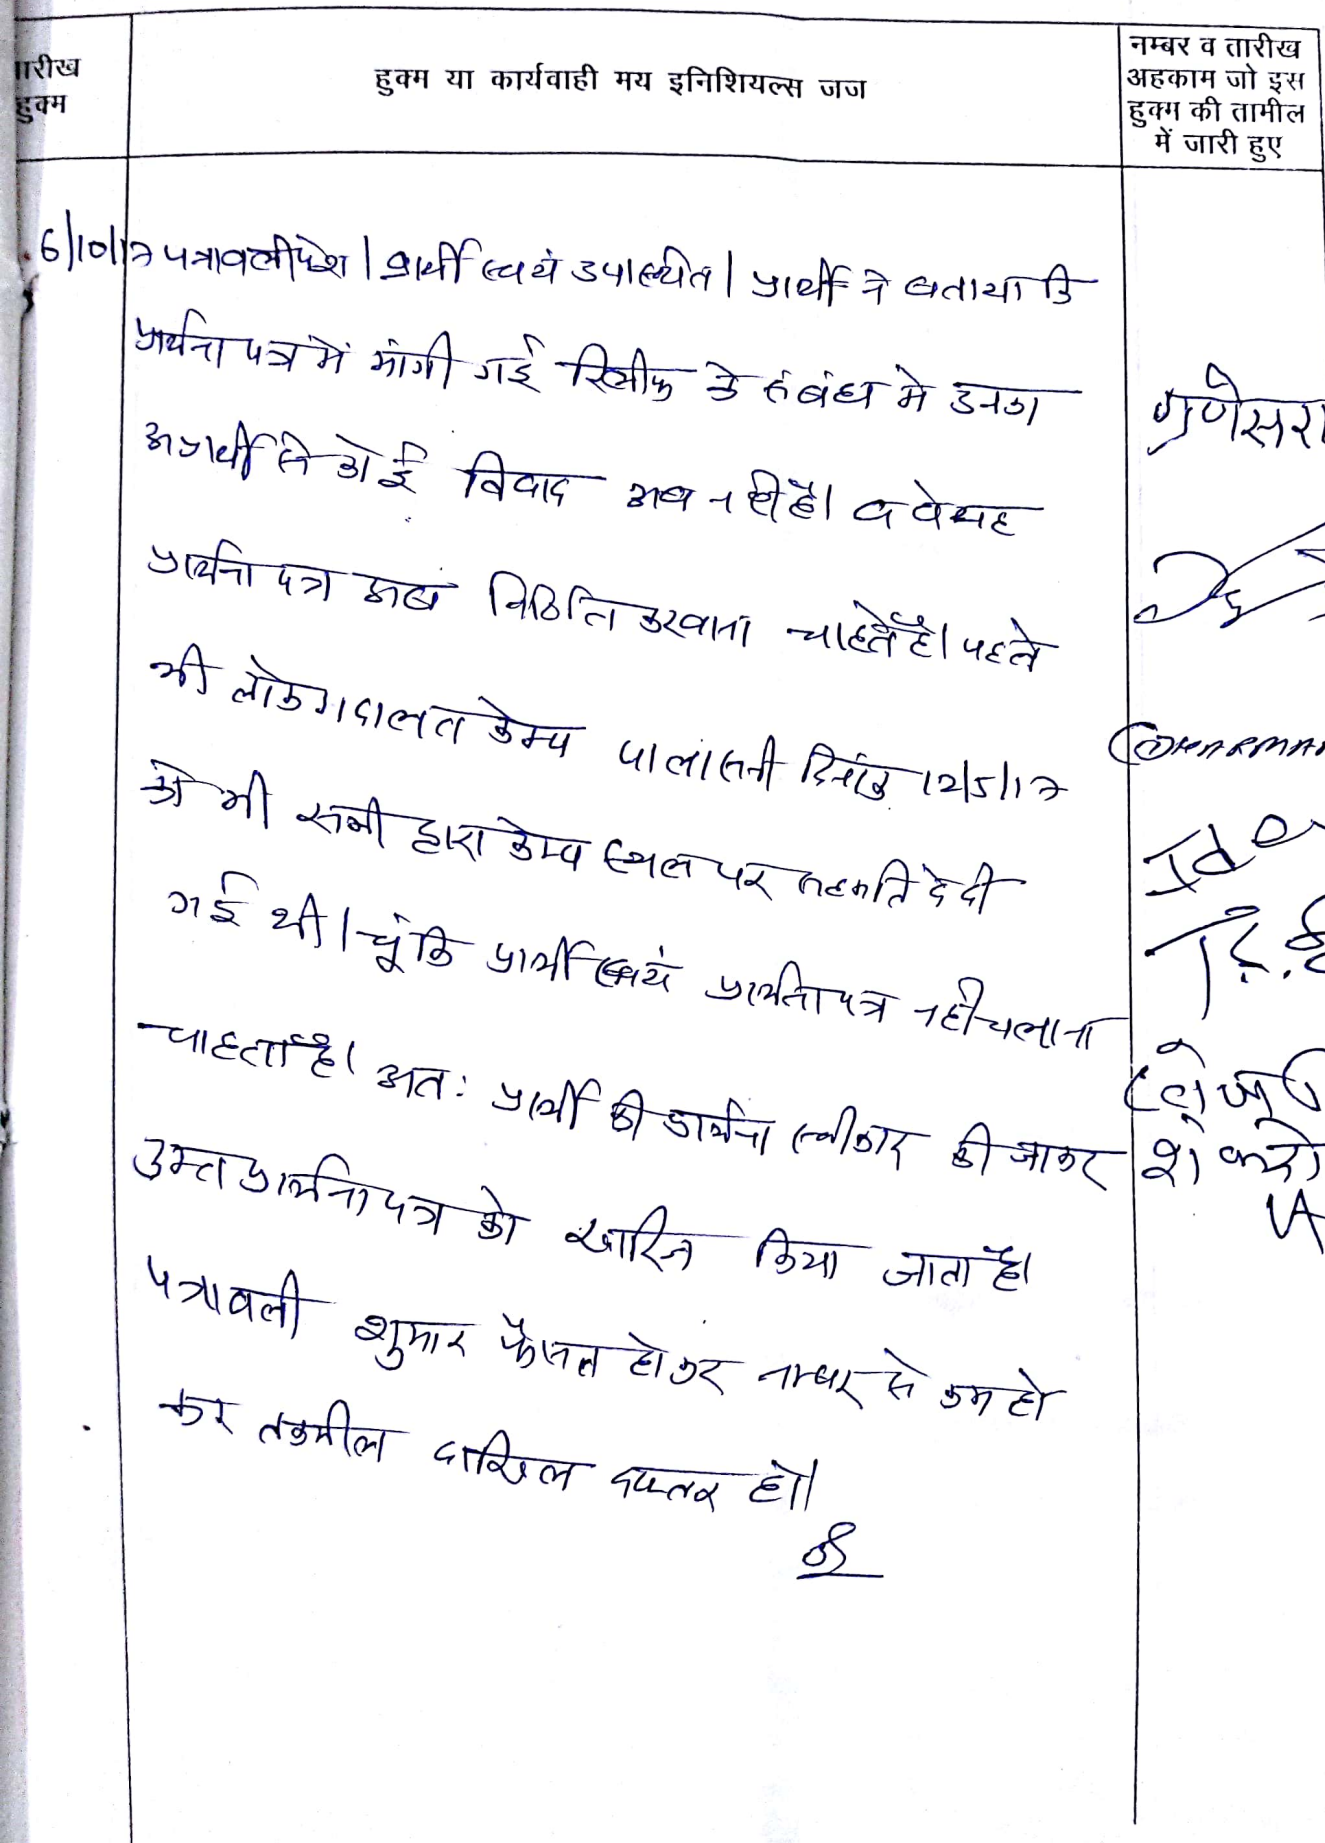 तारीख
हुक्म
हुक्म या कार्यवाही मय इनिशियल्स जज
नम्बर व तारीख
अहकाम जो इस
हुक्म की तामील
में जारी हुए
6/10/17 पत्रावली पेश। प्रार्थी स्वयं उपस्थित। प्रार्थी ने बताया कि
प्रार्थना पत्र में मांगी गई रिलीफ के संबंध मे उनका
अप्रार्थी से कोई विवाद अब नही है। व वे यह
प्रार्थना पत्र अब करवाना चाहते है। पहले
भी लोक अदालत केम्प पालासनी दिनांक 12/5/17
को भी सभी द्वारा केम्प स्थल पर सहमति दे दी
गई थी। चूंकि प्रार्थी स्वयं प्रार्थना पत्र नही चलाना
चाहता है। अतः प्रार्थी की प्रार्थना स्वीकार की जाकर
उक्त प्रार्थना पत्र को खारिज किया जाता है।
पत्रावली शुमार फैसल होकर नम्बर से कम हो
कर तकमील दाखिल दफ्तर हो।
गणेसरा